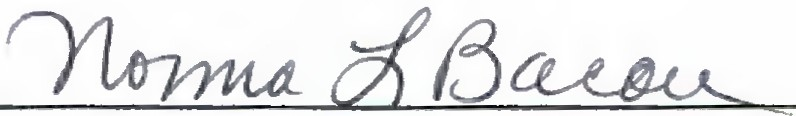 Norma L Bacon